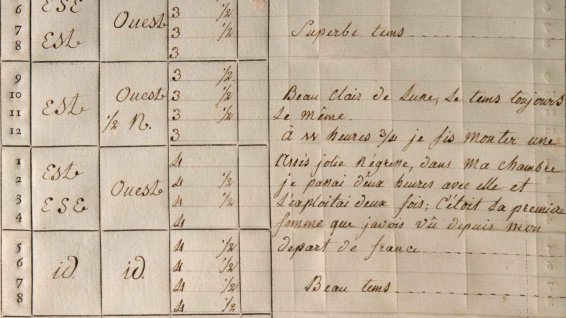 6 ESE 3 ½
7 Ouest 3 ½
8 Est 3 Superbe tems
9 3 ½
10 Ouest 3 ½ Beau Clair de Lune, Le tems toujours
11 Est 3 ½ Le même.
12 ½ N. 3 à 11 heures ¾ je fis monter une
1 Est 4 assés jolie Négrine, dans ma chambre
2 Ouest 4 ½ je passai deux heures avec elle et
3 ESE 4 ½ L'exploitai deux fois; C'étoit La premiere
4 4 femme que javois vû depuis mon
5 4 ½ depart de france
6 id. id. 4 ½
7 4 ½ Beau tems
8 4 ½